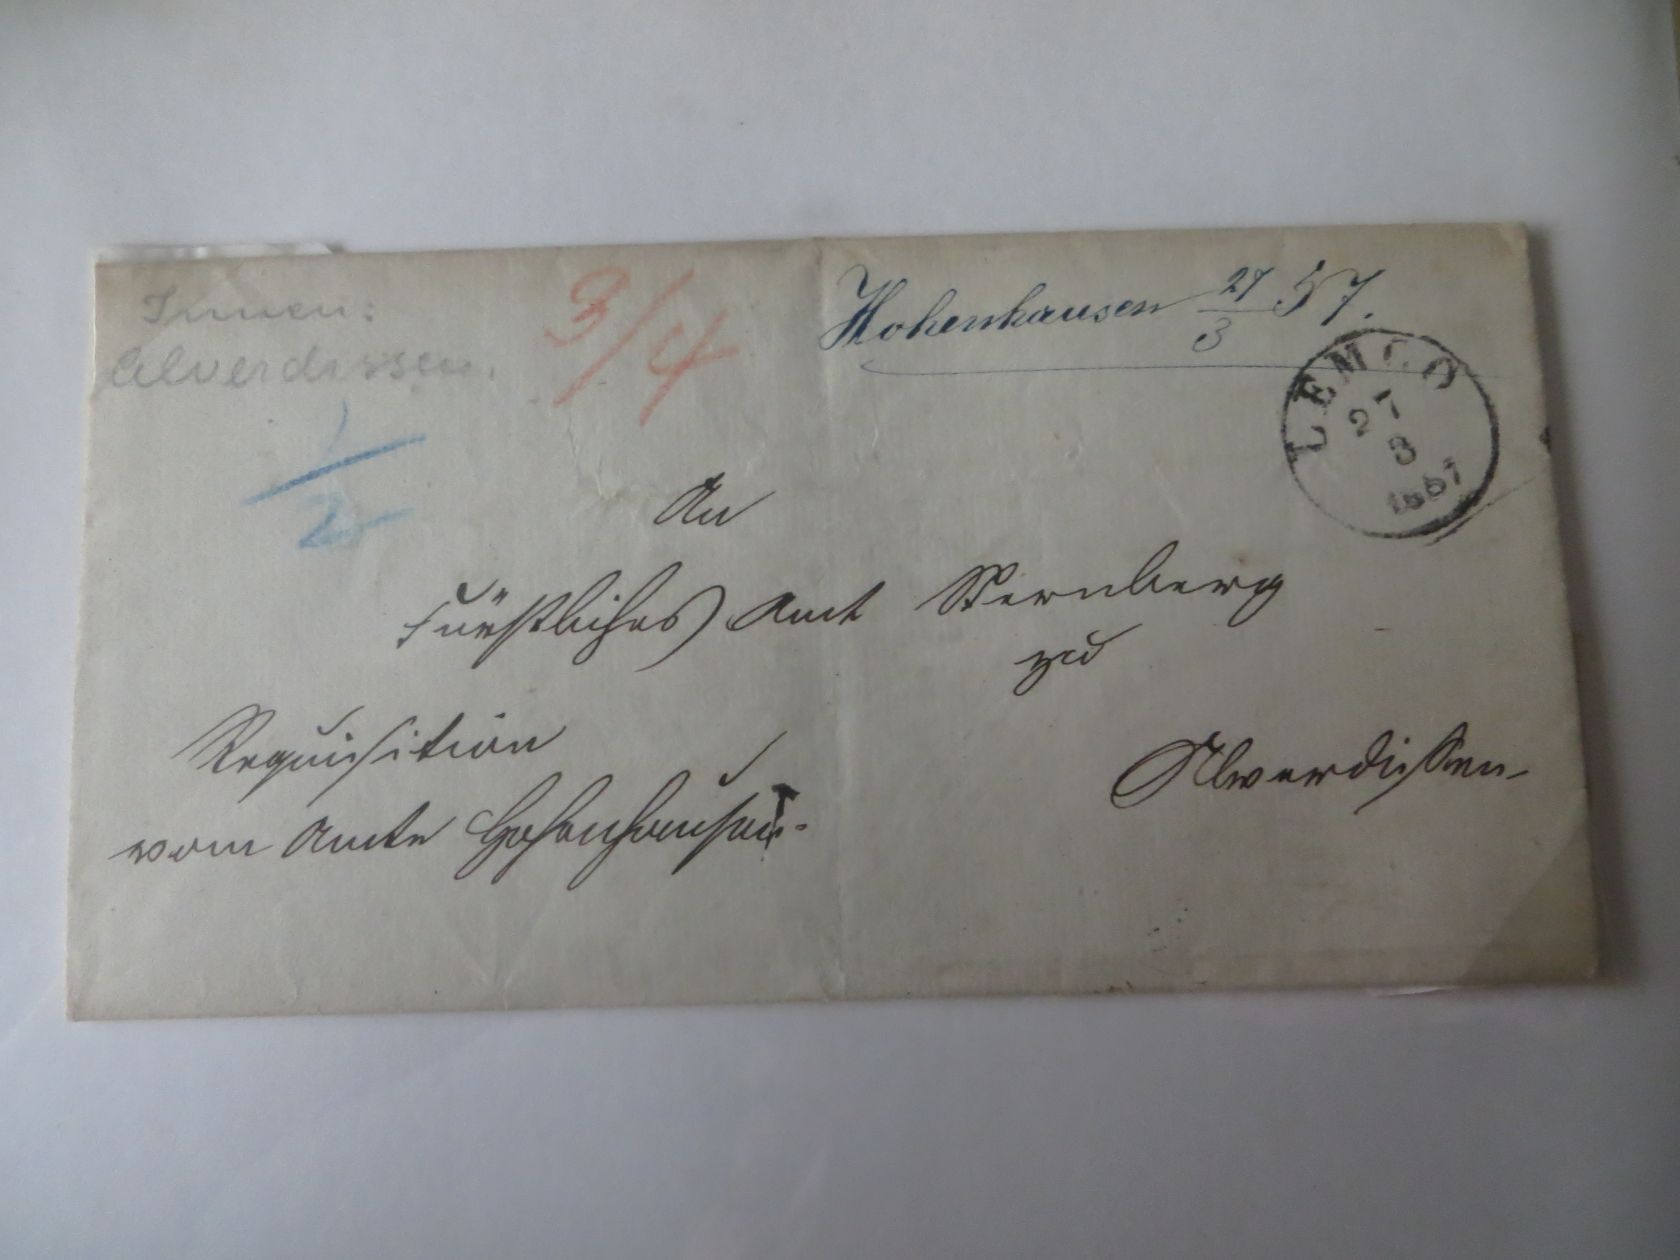 Innen:
Alverdissen.
3/4
Hohenhausen 27/3 57.
LEMGO
27
3
1857
1/2
An
Fürstliches Amt Sternberg
zu
Alverdissen
Requisition
vom Amte Hohenhausen.